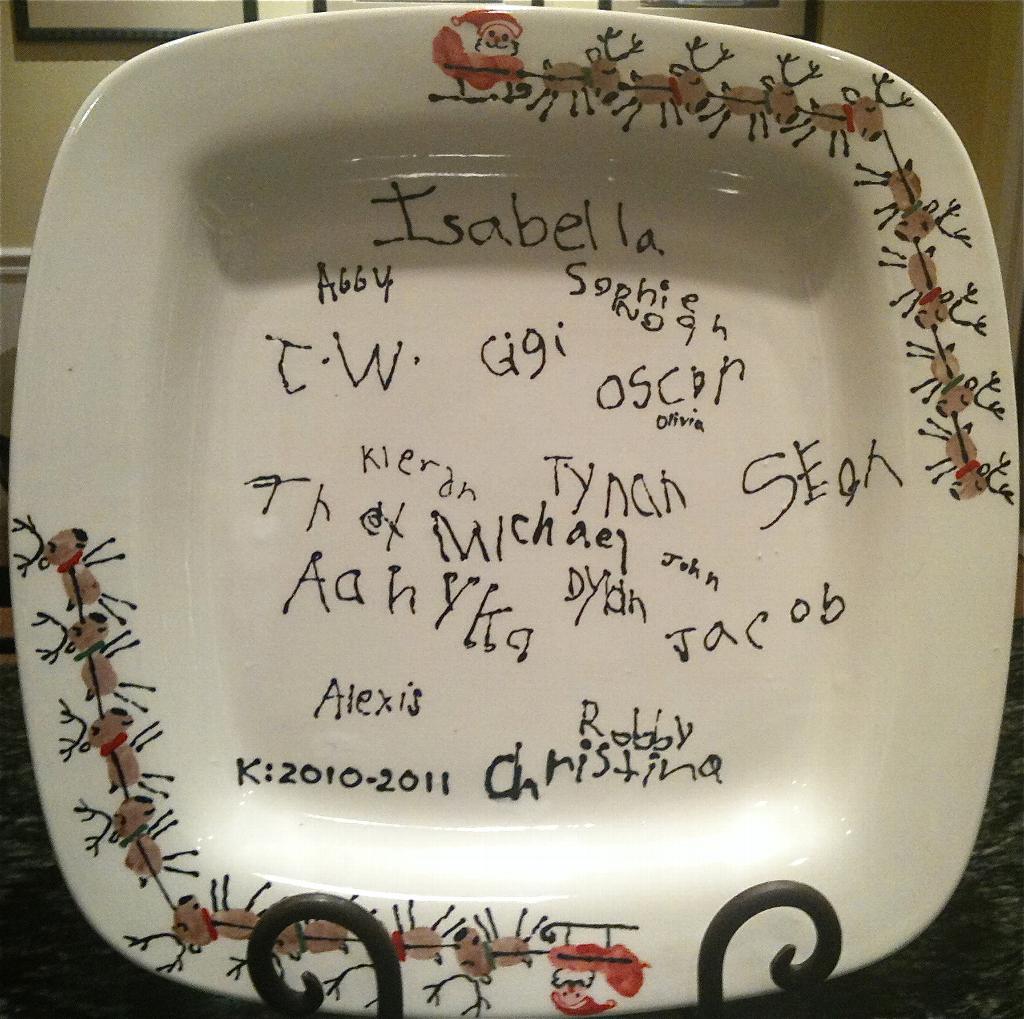 Isabella
Abby
Sophie
Noah
T.W.
Gigi
OSCAR
Olivia
Kieran
Tynan
SEan
Michael
John
Dylan
Jacob
Alexis
Robby
K:2010-2011
Christina